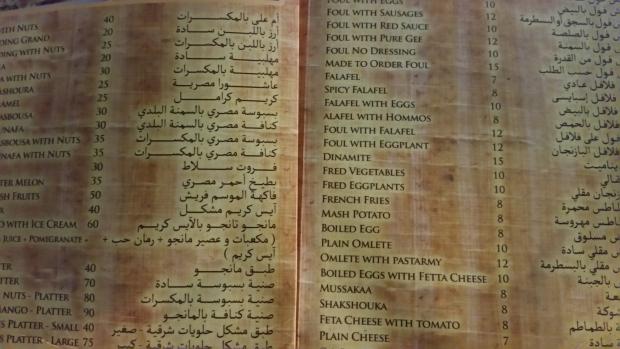 WITH NUTS 40 أم على بالمكسرات
DING GRAND 20 أرز باللبن سادة
DING WITH NUTS 30 أرز باللبن بالمكسرات
A 20 مهلبية سادة
A WITH NUTS 30 مهلبية بالمكسرات
ASHOURA 25 عاشورا مصرية
AMEL 25 كريم كرامل
ASBOUSA 30 بسبوسة مصري بالسمنة البلدي
UNAFA 30 كنافة مصري بالسمنة البلدي
ASBOUSA WITH NUTS 35 بسبوسة مصري بالمكسرات
UNAFA WITH NUTS 35 كنافة مصري بالمكسرات
30 فروت سلاط
TER MELON 35 بطيخ أحمر مصري
SH FRUITS 50 فاكهة الموسم فريش
50 آيس كريم مشكل
O WITH ICE CREAM 60 مانجو تانجو بالآيس كريم
JUICE + POMIGRANATE + ( مكعبات و عصير مانجو + رمان حب +
آيس كريم )
TTER 40 طبق مانجو
TTER 70 صنية بسبوسة سادة
NUTS - PLATTER 80 صنية بسبوسة بالمكسرات
ANGO - PLATTER 90 صنية كنافة بالمانجو
TS PLATTER - SMALL 40 طبق مشكل حلويات شرقية - صغير
TS PLATTER - LARGE 75 طبق مشكل حلويات شرقية - كبير
FOUL WITH EGGS 10 فول بالبيض
FOUL WITH SAUSAGES 12 فول بالسجق أو البسطرمة
FOUL WITH RED SAUCE 10 فول بالصلصة
FOUL WITH PURE GEF 12 فول بالسمنة
FOUL NO DRESSING 10 فول من القدرة
MADE TO ORDER FOUL 15 فول حسب الطلب
FALAFEL 7 فلافل عادي
SPICY FALAFEL 8 فلافل إسبايسى
FALAFEL WITH EGGS 10 فلافل بالبيض
ALAFEL WITH HOMMOS 8 فلافل بالحمص
FOUL WITH FALAFEL 12 فول على فلافل
FOUL WITH EGGPLANT 12 البازنجان
DINAMITE 15
FRED VEGETABLES 10
FRED EGGPLANTS 10 مقلي
FRENCH FRIES 8 محمرة
MASH POTATO 8 مهروسة
BOILED EGG 8 مسلوق
PLAIN OMLETE 8 مقلي سادة
OMLETE WITH PASTARMY 12 مقلي بالبسطرمة
BOILED EGGS WITH FETTA CHEESE 10 بالجبنة
MUSSAKAA 8
SHAKSHOUKA 8
FETA CHEESE WITH TOMATO 8 بالطماطم
PLAIN CHEESE 7 سادة